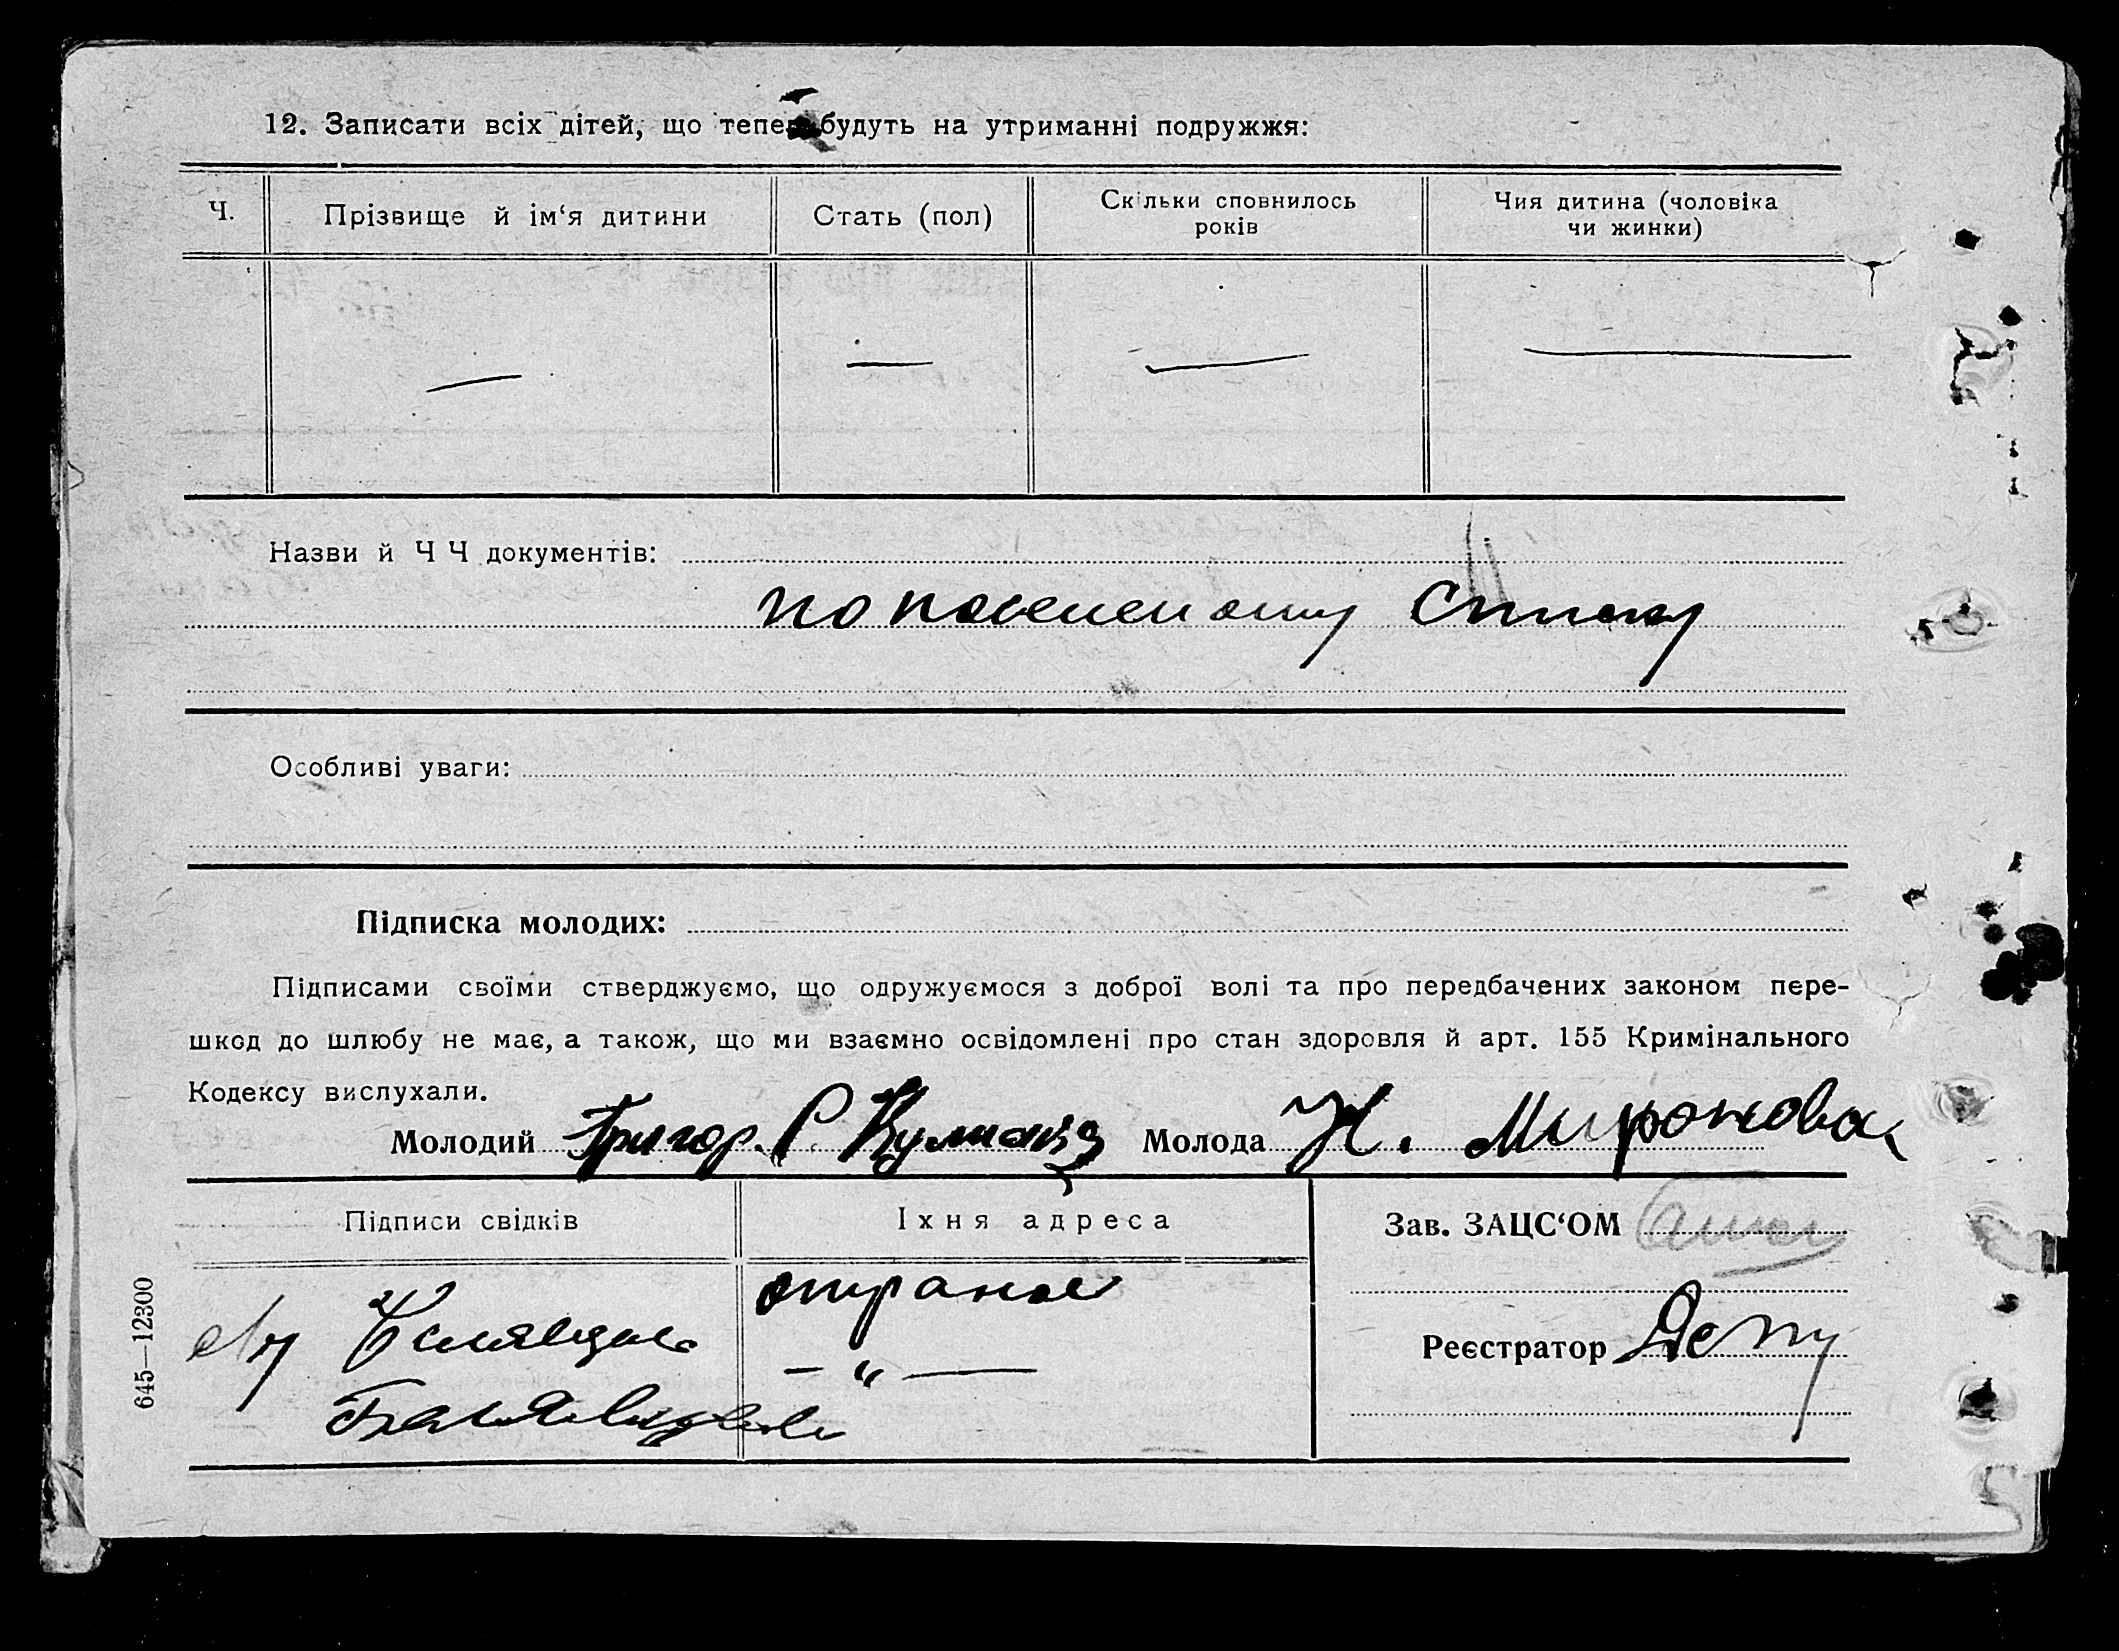 12. Записати всіх дітей, що тепер будуть на утриманні подружжя:
Ч.
Прізвище й ім‘я дитини
Стать (пол)
Скільки сповнилось
років
Чия дитина (чоловіка
чи жинки)
— — — —
Назви й Ч Ч документів:
по
Особливі уваги:
Підписка молодих:
Підписами своїми стверджуємо, що одружуємося з доброї волі та про передбачених законом пере-
шкод до шлюбу не має, а також, що ми взаємно освідомлені про стан здоровля й арт. 155 Кримінального
Кодексу вислухали.
Молодий Григор. Молода Н. Миронова
Підписи свідків
Їхня адреса
Зав. ЗАЦС‘ОМ
— „ —
Реєстратор
645—12300